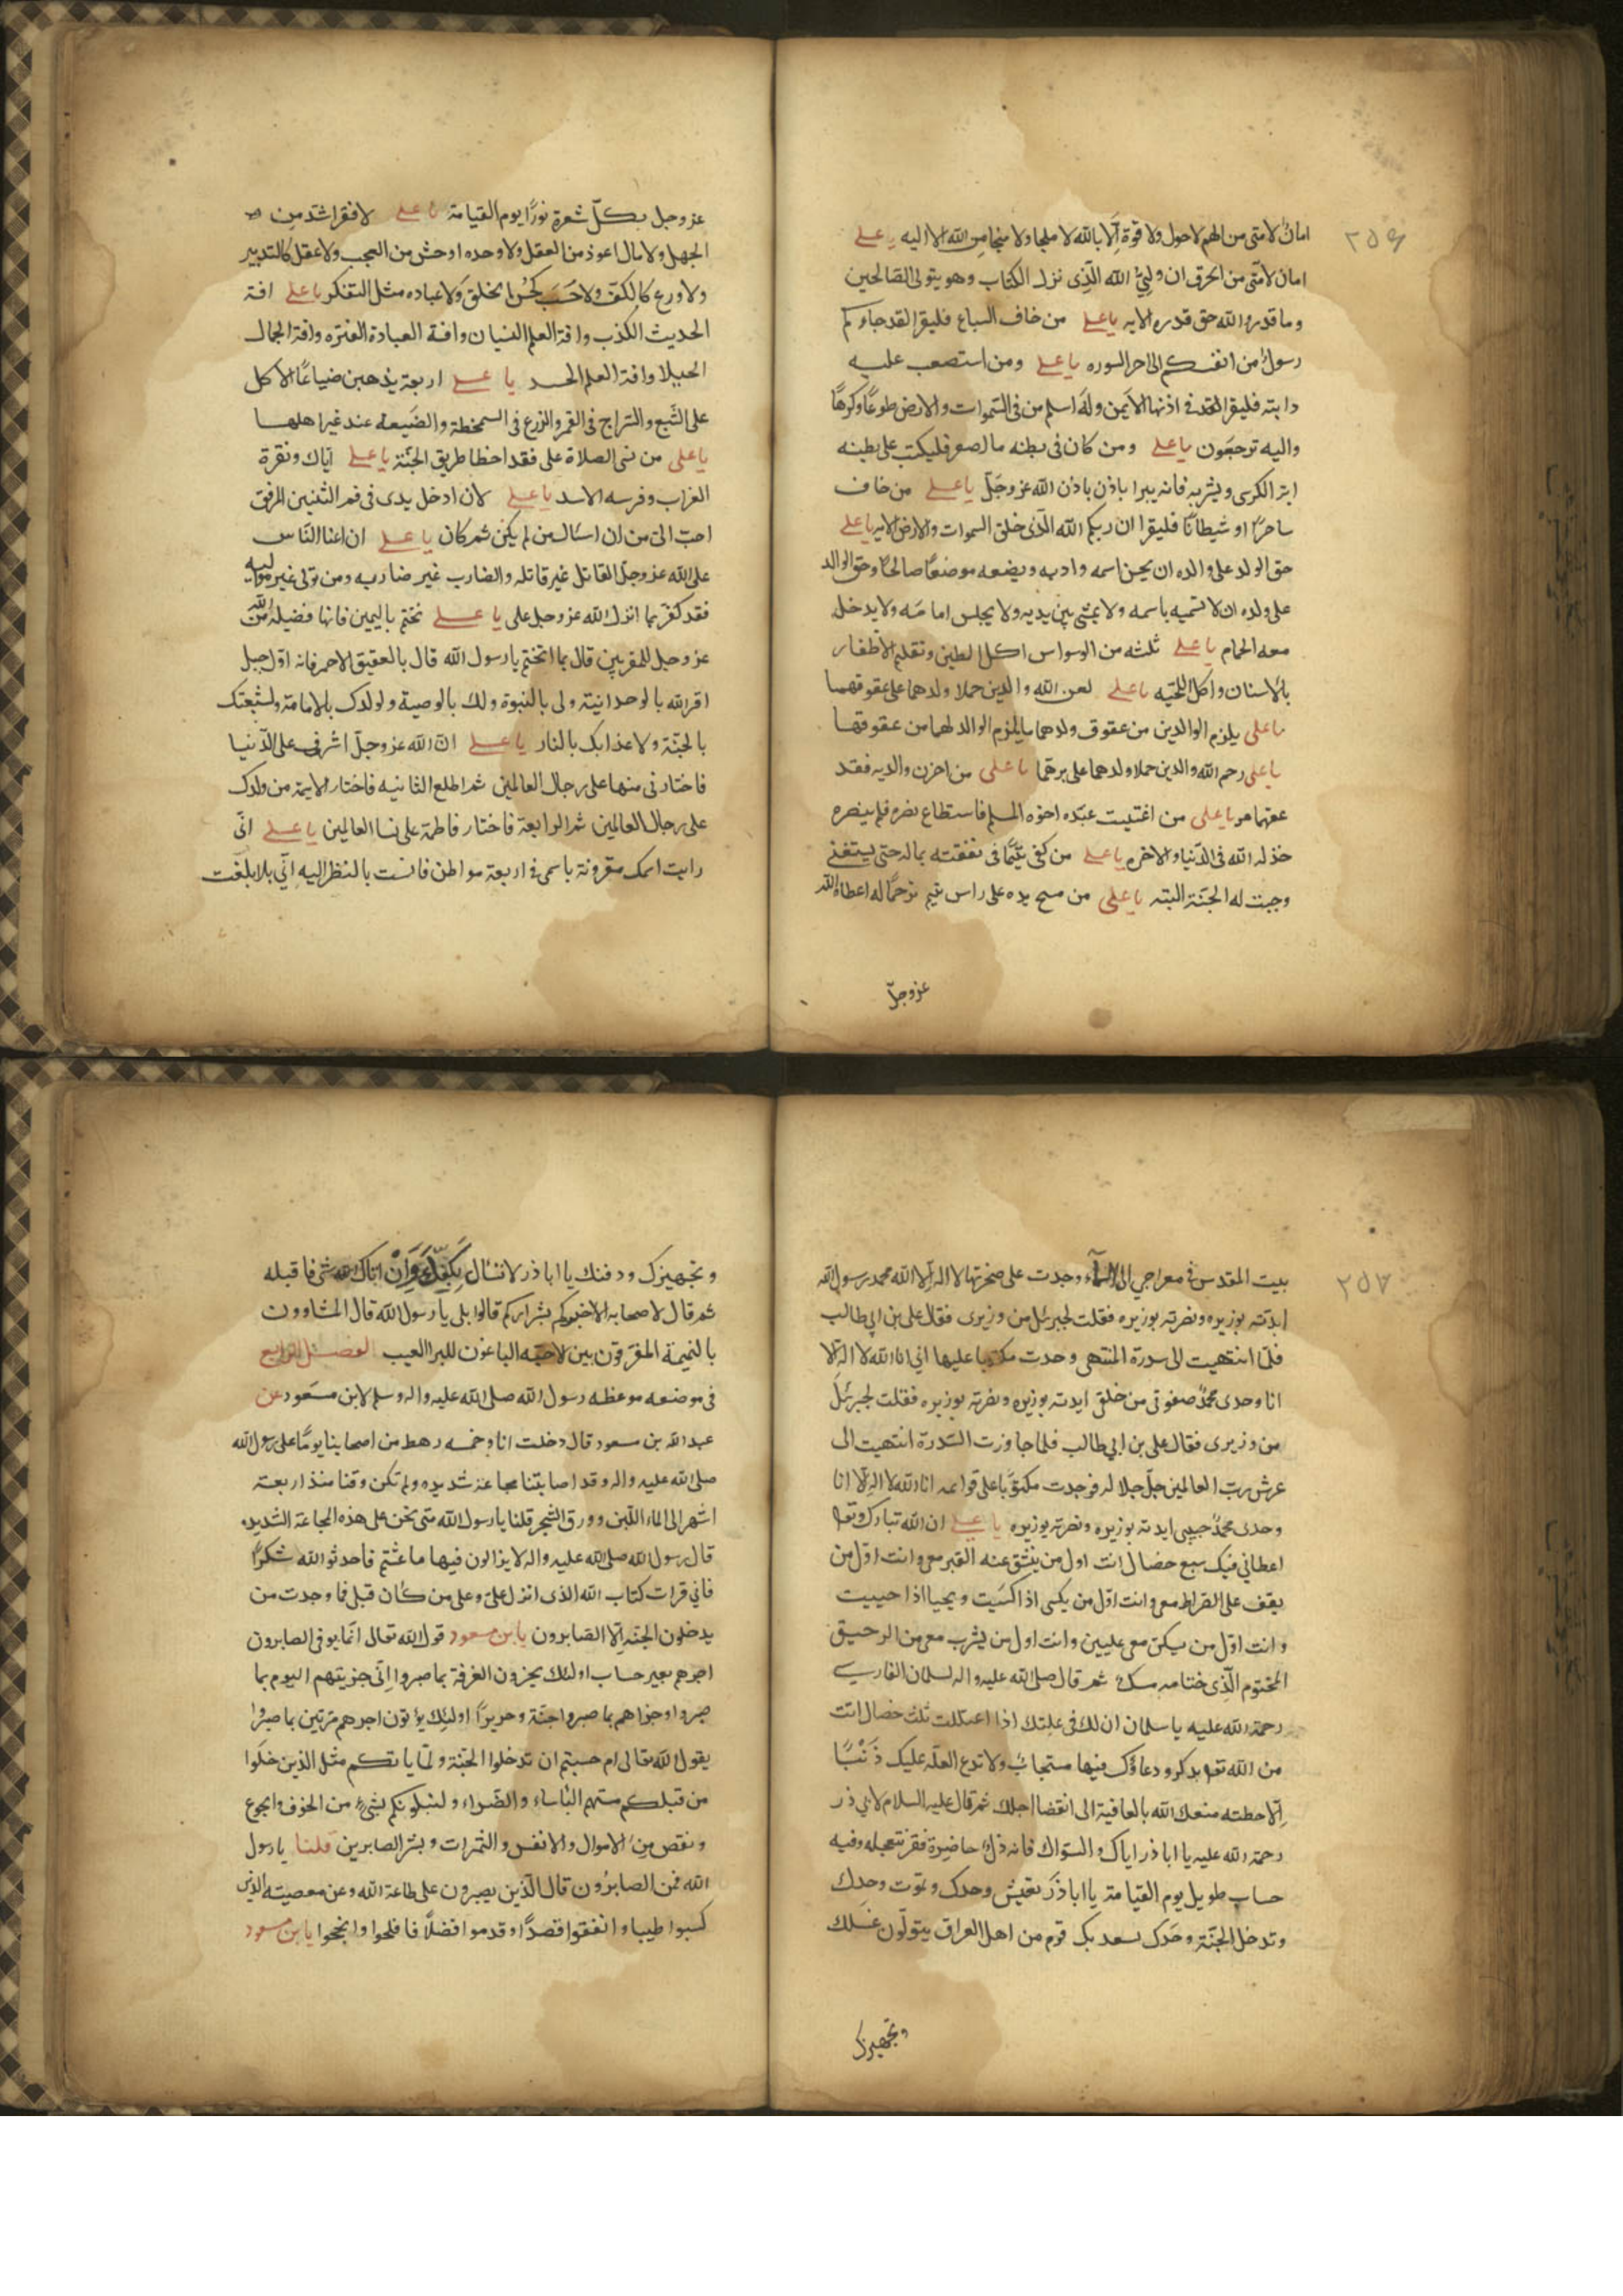 ٢٥٦
امان لامتى من الهم لاحول ولا قوة الا بالله لا ملجا ولا منجا من الله الا اليه يا على
امان لامتى من الحرق ان وليى الله الذى نزل الكتاب وهو يتولى الصالحين
وما قدروا الله حق قدره الايه يا على من خاف السباع فليقرا لقد جاءكم
رسول من انفسكم الى اخر السوره يا على ومن استصعب عليه
دابته فليقرا فى اذنها الايمن وله اسلم من فى السموات والارض طوعا وكرها
واليه ترجعون يا على ومن كان فى بطنه ما اصفر فليكتب على بطنه
اية الكرسى ويشربه فانه يبرا باذن باذن الله عز وجل يا على من خاف
ساحرا او شيطانا فليقرا ان ربكم الله الذى خلق السموات والارض الايه يا على
حق الولد على والده ان يحسن اسمه وادبه ويضعه موضعا صالحا وحق الوالد
على ولده ان لا تسميه باسمه ولا يمشى بين يديه ولا يجلس امامه ولا يدخل
معه الحمام يا على ثلثه من الوسواس اكل الطين وتقليم الاظفار
بالاسنان واكل اللحيه يا على لعن الله والدين حملا ولدهما على عقوقهما
يا على يلزم الوالدين من عقوق ولدهما ما يلزم الوالد لهما من عقوقهما
يا على رحم الله والدين حملا ولدهما على برهما يا على من احزن والديه فقد
عقهما هو يا على من اغتيب عبده اخوه المسلم فاستطاع نصره فلم ينصره
خذله الله فى الدنيا والاخره يا على من كفى يتيما فى نفقته بماله حتى يستغنى
وجبت له الجنة البته يا على من مسح يده على راس يتيم ترحما له اعطاه الله
عز وجل
عز وجل بكل شعرة نورا يوم القيامة يا على لا فقر اشد من
الجهل ولا مال اعوذ من العقل ولا وحده اوحش من العجب ولا عقل كالتدبير
ولا ورع كالكف ولا حسب كحسن الخلق ولا عباده مثل التفكر يا على افة
الحديث الكذب وافة العلم النسيان وافة العبادة الفتره وافة الجمال
الخيلا وافة العلم الحسد يا على اربعة يذهبن ضياعا الاكل
على الشبع والسراج فى القمر والزرع فى السمخطة والضيعه عند غير اهلها
يا على من نسى الصلاة على فقد اخطا طريق الجنة يا على اياك ونقرة
الغراب وفرسه الاسد يا على لان ادخل يدى فى فم التنين المرفق
احب الى من ان اسئال من لم يكن ثم كان يا على ان اعنا الناس
على الله عز وجل القاتل غير قاتله والضارب غير ضاربه ومن تولى غير مواليه
فقد كفر بما انزل الله عز وجل على يا على تختم باليمين فانها فضيلة من الله
عز وجل للمقربين قال بما اتختم يا رسول الله قال بالعقيق الاحمر فانه اول جبل
اقر لله بالوحدانيته ولى بالنبوة ولك بالوصية ولولدك بالامامة ولشيعتك
بالجنة ولاعدائك بالنار يا على ان الله عز وجل اشرف على الدنيا
فاختارنى منها على رجال العالمين ثم اطلع الثانيه فاختار الايمة من ولدك
على رجال العالمين ثم الرابعة فاختار فاطمة على نسا العالمين يا على انى
رايت اسمك مقرونة باسمى فى اربعة مواطن فانست بالنظر اليه انى بلا بلغت
٢٥٧
بيت المقدس فى معراجي الى السماء وجدت على صخرتها لا اله الا الله محمد رسول الله
ايدته بوزيره ونصرته بوزيره فقلت لجبرئل من وزيرى فقال على بن ابي طالب
فلما انتهيت الى سدرة المنتهى وجدت مكتوبا عليها انى انا الله لا اله الا
انا وحدى محمد صفوتى من خلقى ايدته بوزيره ونصرته بوزيره فقلت لجبرئل
من وزيرى فقال على بن ابي طالب فلما جاوزت السدرة انتهيت الى
عرش رب العالمين جل جلاله فوجدت مكتوبا على قوائمه انا الله لا اله الا انا
وحدى محمد حبيبى ايدته بوزيره ونصرته بوزيره يا على ان الله تبارك وتعا
اعطانى فيك سبع خصال انت اول من ينشق عنه القبر معى وانت اول من
يقف على الصراط معى وانت اول من يكسى اذا اكسيت ويحيا اذا حييت
وانت اول من يسكن معى عليين وانت اول من يشرب معى من الرحيق
المختوم الذى ختامه مسك ثم قال صلى الله عليه واله لسلمان الفارسى
رحمة الله عليه يا سلمان ان لك فى علتك اذا اعتللت ثلث خصال انت
من الله تعا بذكر ودعاؤك فيها مستجاب ولا تدع العلة عليك ذنبا
الا حطته متعك الله بالعافية الى انقضا اجلك ثم قال عليه السلام لابي ذر
رحمة الله عليه يا ابا ذر اياك والسؤاك فانه ذل حاضرة فقر تتعجله وفيه
حساب طويل يوم القيامة يا ابا ذر تعيش وحدك وتموت وحدك
وتدخل الجنة وحدك يسعد بك قوم من اهل العراق يتولون غسلك
وتجهيزك
وتجهيزك ودفنك يا ابا ذر لا تسئال بكفك وان اتاك شى فاقبله
ثم قال لاصحابه الا اخبركم بشراركم قالوا بلى يا رسول الله قال المشاوون
بالنميمة المفرقون بين الاحبه الباغون للبرا العيب الفصل الرابع
فى موضعه موعظه رسول الله صلى الله عليه واله وسلم لابن مسعود عن
عبد الله بن مسعود قال دخلت انا وخمسه رهط من اصحابنا يوما على رسول الله
صلى الله عليه واله وقد اصابتنا مجاعة شديده ولم تكن وقنا منذ اربعة
اشهر الى الماء اللبن وورق الشجر قلنا يا رسول الله متى نحن على هذه المجاعة الشديده
قال رسول الله صلى الله عليه واله لا يزالون فيها ما عشتم فاحدثوا الله شكرا
فانى قرات كتاب الله الذى انزل على وعلى من كان قبلى فما وجدت من
يدخلون الجنة الا الصابرون يا بن مسعود قول الله تعالى انما يوفى الصابرون
اجرهم بغير حساب اولئك يجزون الغرفة بما صبروا انى جزيتهم اليوم بما
صبروا وجزاهم بما صبروا جنة وحريرا اولئك يؤتون اجرهم مرتين بما صبروا
يقول الله تعالى ام حسبتم ان تدخلوا الجنة ولما ياتكم مثل الذين خلوا
من قبلكم مستهم الباساء والضراء ولنبلونكم بشىء من الخوف والجوع
ونقص من الاموال والانفس والثمرات وبشر الصابرين قلنا يا رسول
الله فمن الصابرون قال الذين يصبرون على طاعة الله وعن معصيته الذين
كسبوا طيبا وانفقوا قصدا وقدموا فضلا فافلحوا وانجحوا يا بن مسعود